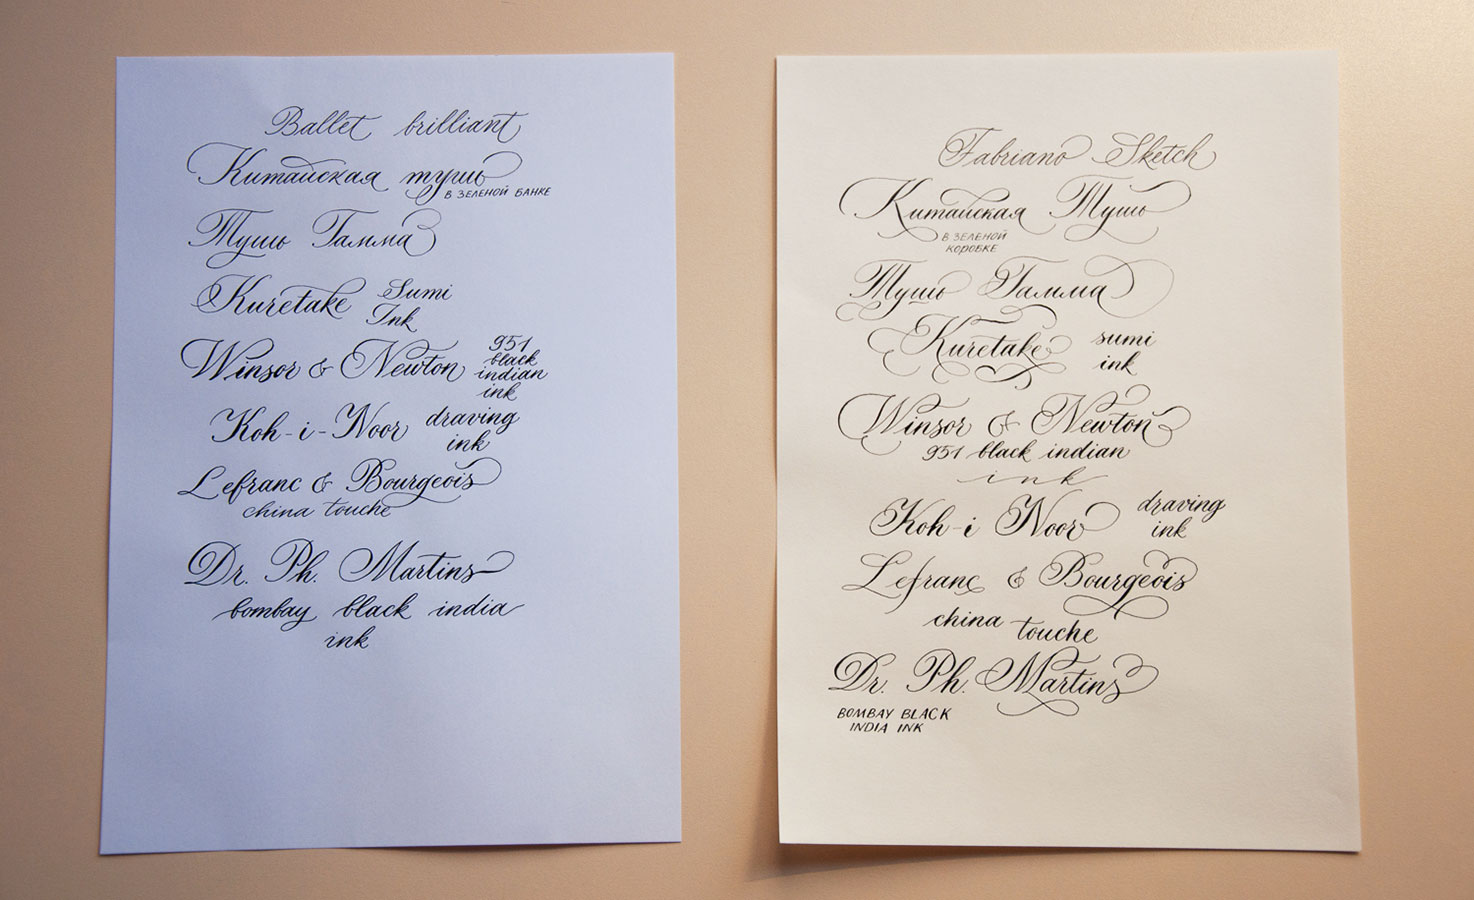 Ballet brilliant
Китайская тушь
В ЗЕЛЕНОЙ БАНКЕ
Тушь Гамма
Kuretake Sumi
Ink
Winsor & Newton 951
black
indian
ink
Koh-i-Noor draving
ink
Lefranc & Bourgeois
china touche
Dr. Ph. Martins
bombay black india
ink
Fabriano Sketch
Китайская Тушь
В ЗЕЛЕНОЙ
КОРОБКЕ
Тушь Гамма
Kuretake sumi
ink
Winsor & Newton
951 black indian
ink
Koh-i Noor draving
ink
Lefranc & Bourgeois
china touche
Dr. Ph. Martins
BOMBAY BLACK
INDIA INK